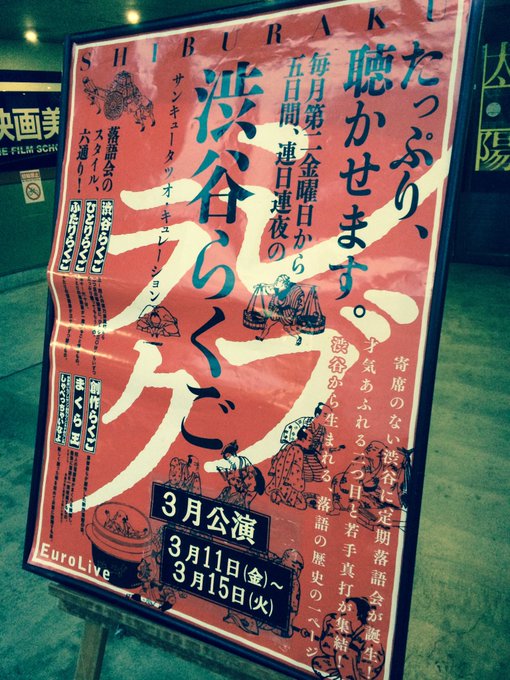 SHIBURAKU
たっぷり、
聴かせます。
毎月第二金曜日から
五日間、連日連夜の
渋谷らくご
サンキュータツオ・キュレーション
落語会の
スタイル、
六通り!
渋谷らくご
ひとりらくご
ふたりらくご
創作らくご
まくら王
しゃべっちゃいなよ
シブ
ラク
寄席のない渋谷に定期落語会が誕生!
才気あふれる二つ目と若手真打が集結!
渋谷から生まれる、落語の歴史の一ページ
3月公演
3月11日(金)~
3月15日(火)
EuroLive
映画美
HE FILM SCHO
太陽